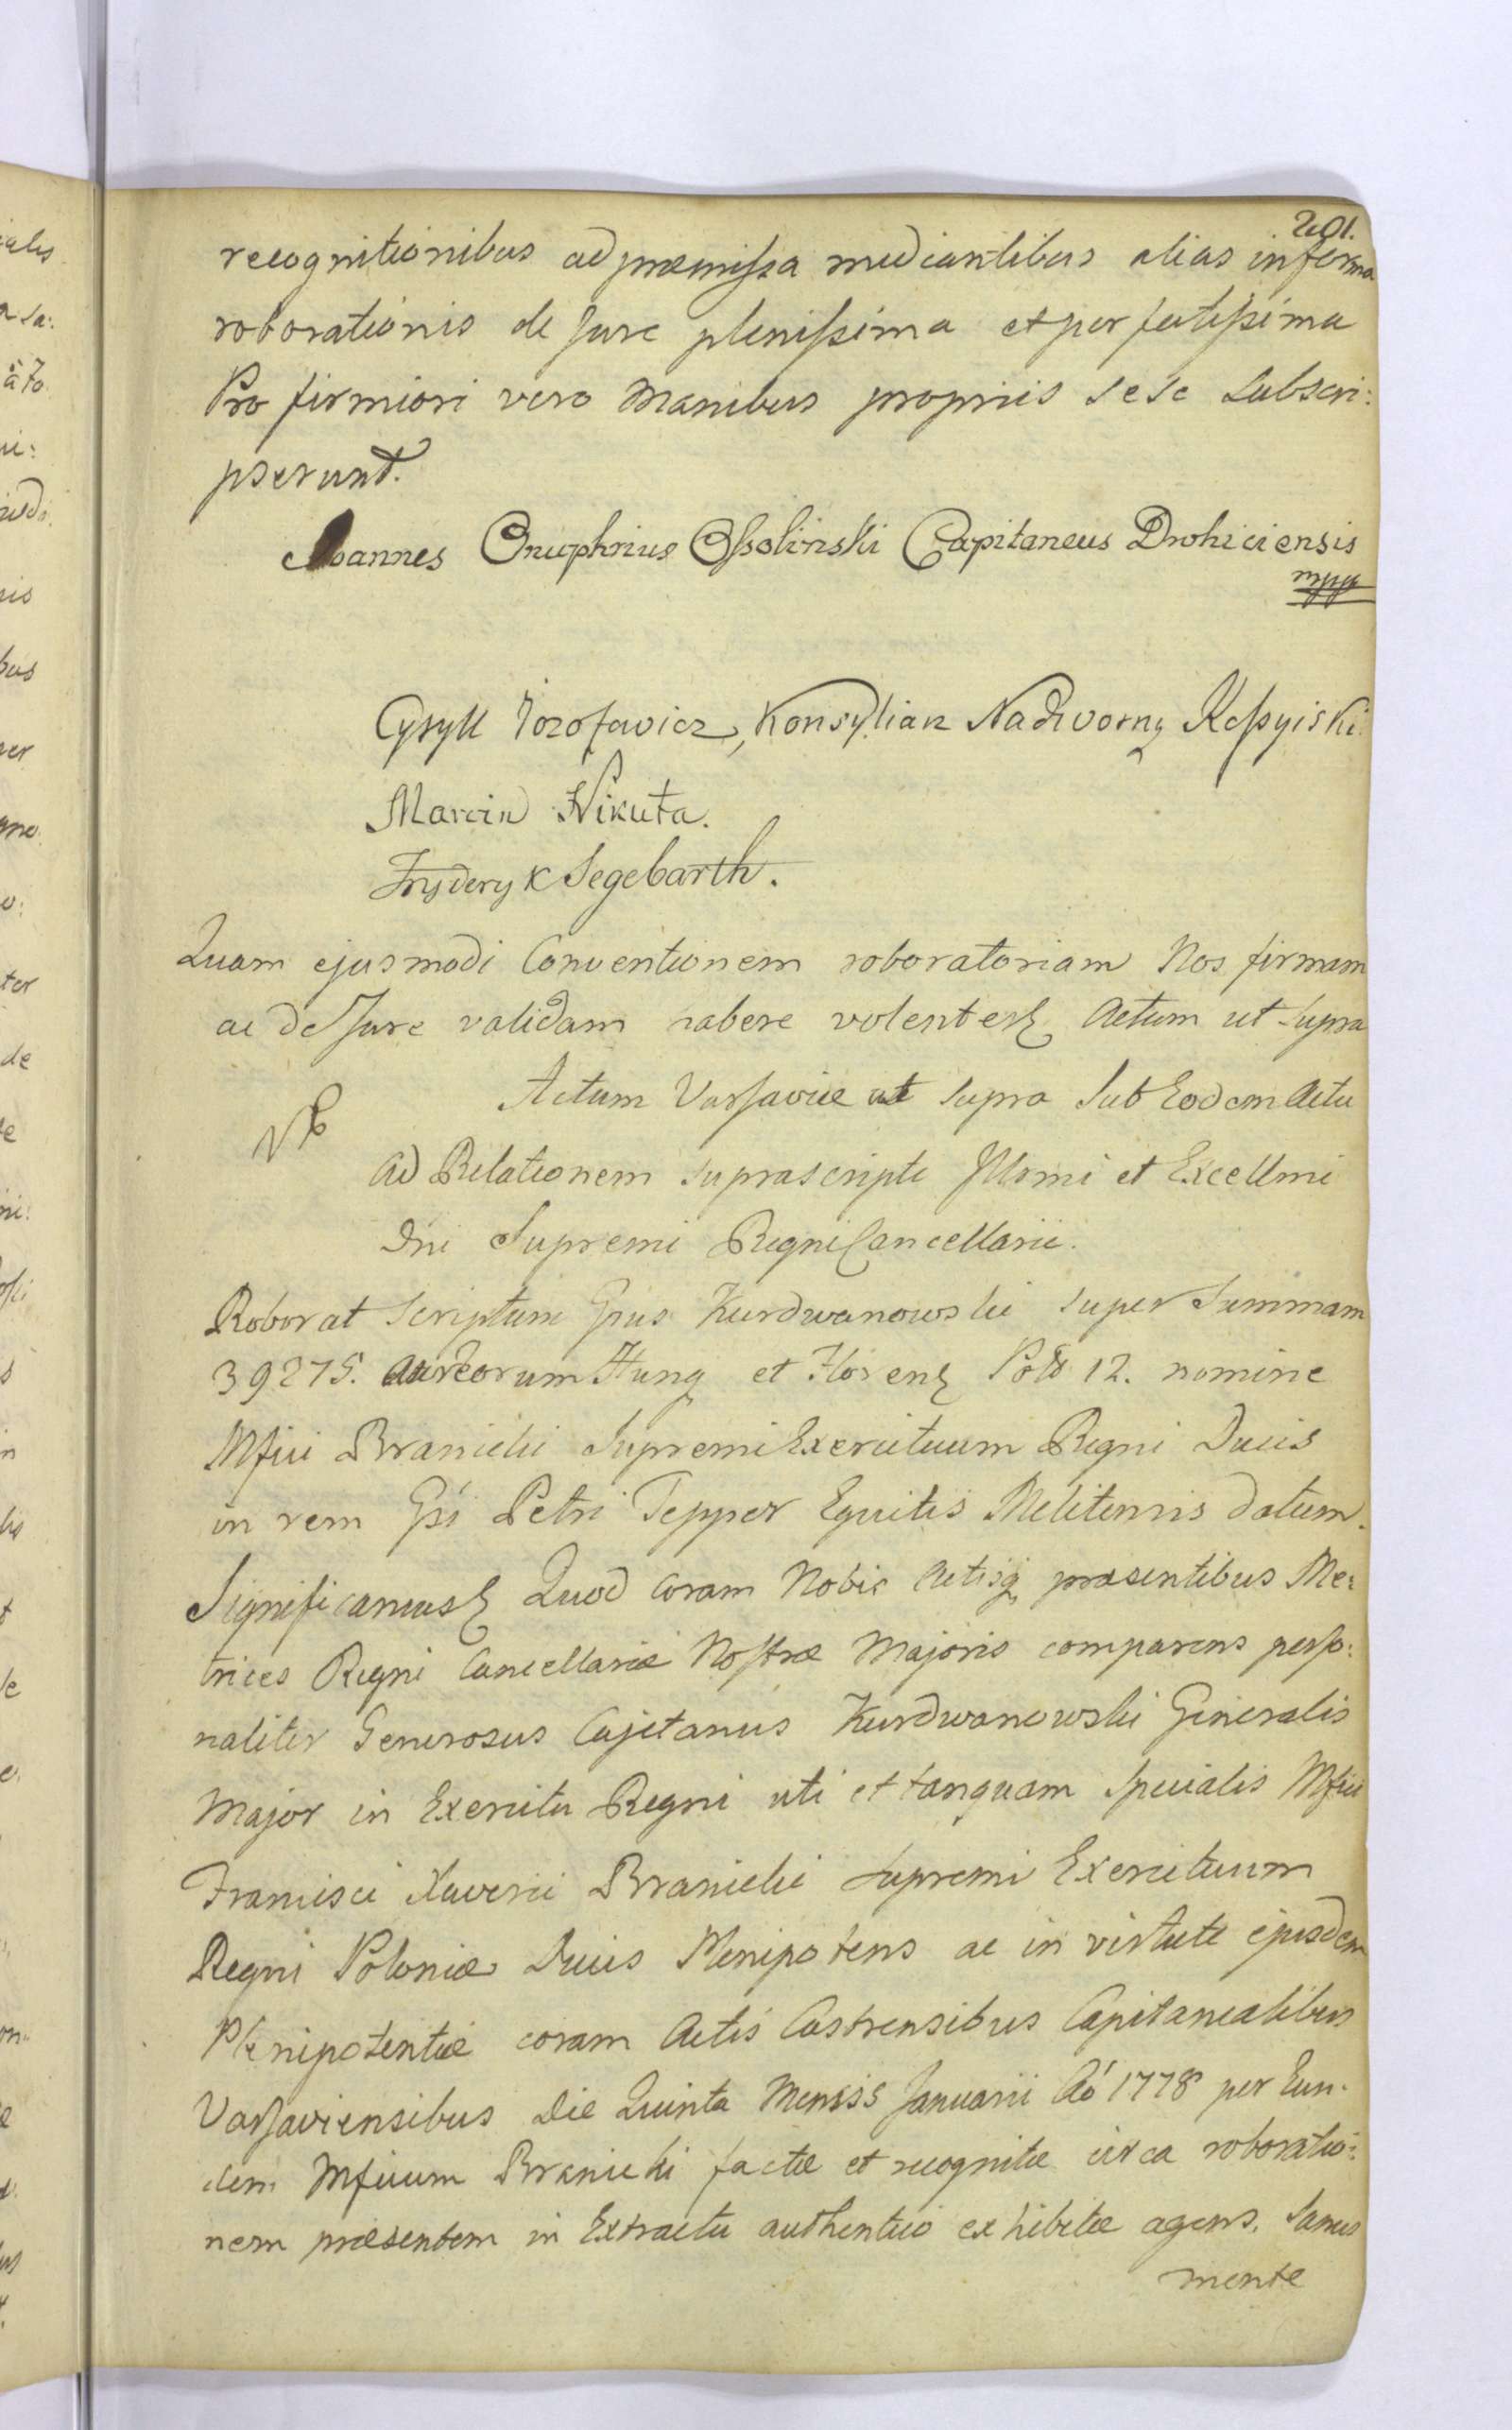 201.
recognitionibus ad præmissa mediantibus alias in forma
roborationis de Jure plenissima et perfectissima
Pro firmiori vero Manibus propriis sese Subscri:
pserunt.
Joannes Onuphrius Ossolinski Capitaneus Drohiciensis
mpp
Cyryll Jozofowicz, Konsyliarz Nadworny Rossyiski.
Marcin Nikuta.
Fryderyk Segebarth.
Quam ejusmodi Conventionem roboratoriam Nos firmam
ac de Jure validam habere volentes Actum ut Supra
Actum Varsaviæ ut supra Sub Eodem Actu
Ad Relationem suprascripti Illsmi et Excellmi
Dni Supremi Regni Cancellarii.
Roborat Scriptum Gsus Kurdwanowski super Summam
39275. Aureorum Hung et Floren Pol 12. nomine
Mfici Branicki Supremi Exercituum Regni Ducis
in rem Gsi Petri Tepper Equitis Melitensis datum.
Significamus Quod coram Nobis Actisq præsentibus Me:
trices Regni Cancellariæ Nostræ Majoris comparens perso:
naliter Generosus Cajetanus Kurdwanowski Generalis
Major in Exercitu Regni uti et tanquam Specialis Mfici
Francisci Xaverii Branicki Supremi Exercituum
Regni Poloniæ Ducis Plenipotens ac in virtute ejusdem
Plenipotentiæ coram Actis Castrensibus Capitanealibus
Varsaviensibus Die Quinta Mensis Januarii Aō 1778 per Eun-
dem Mficum Branicki factæ et recognitæ circa roboratio:
nem præsentem in Extractu authentico exhibitæ agens. Sanus
mente